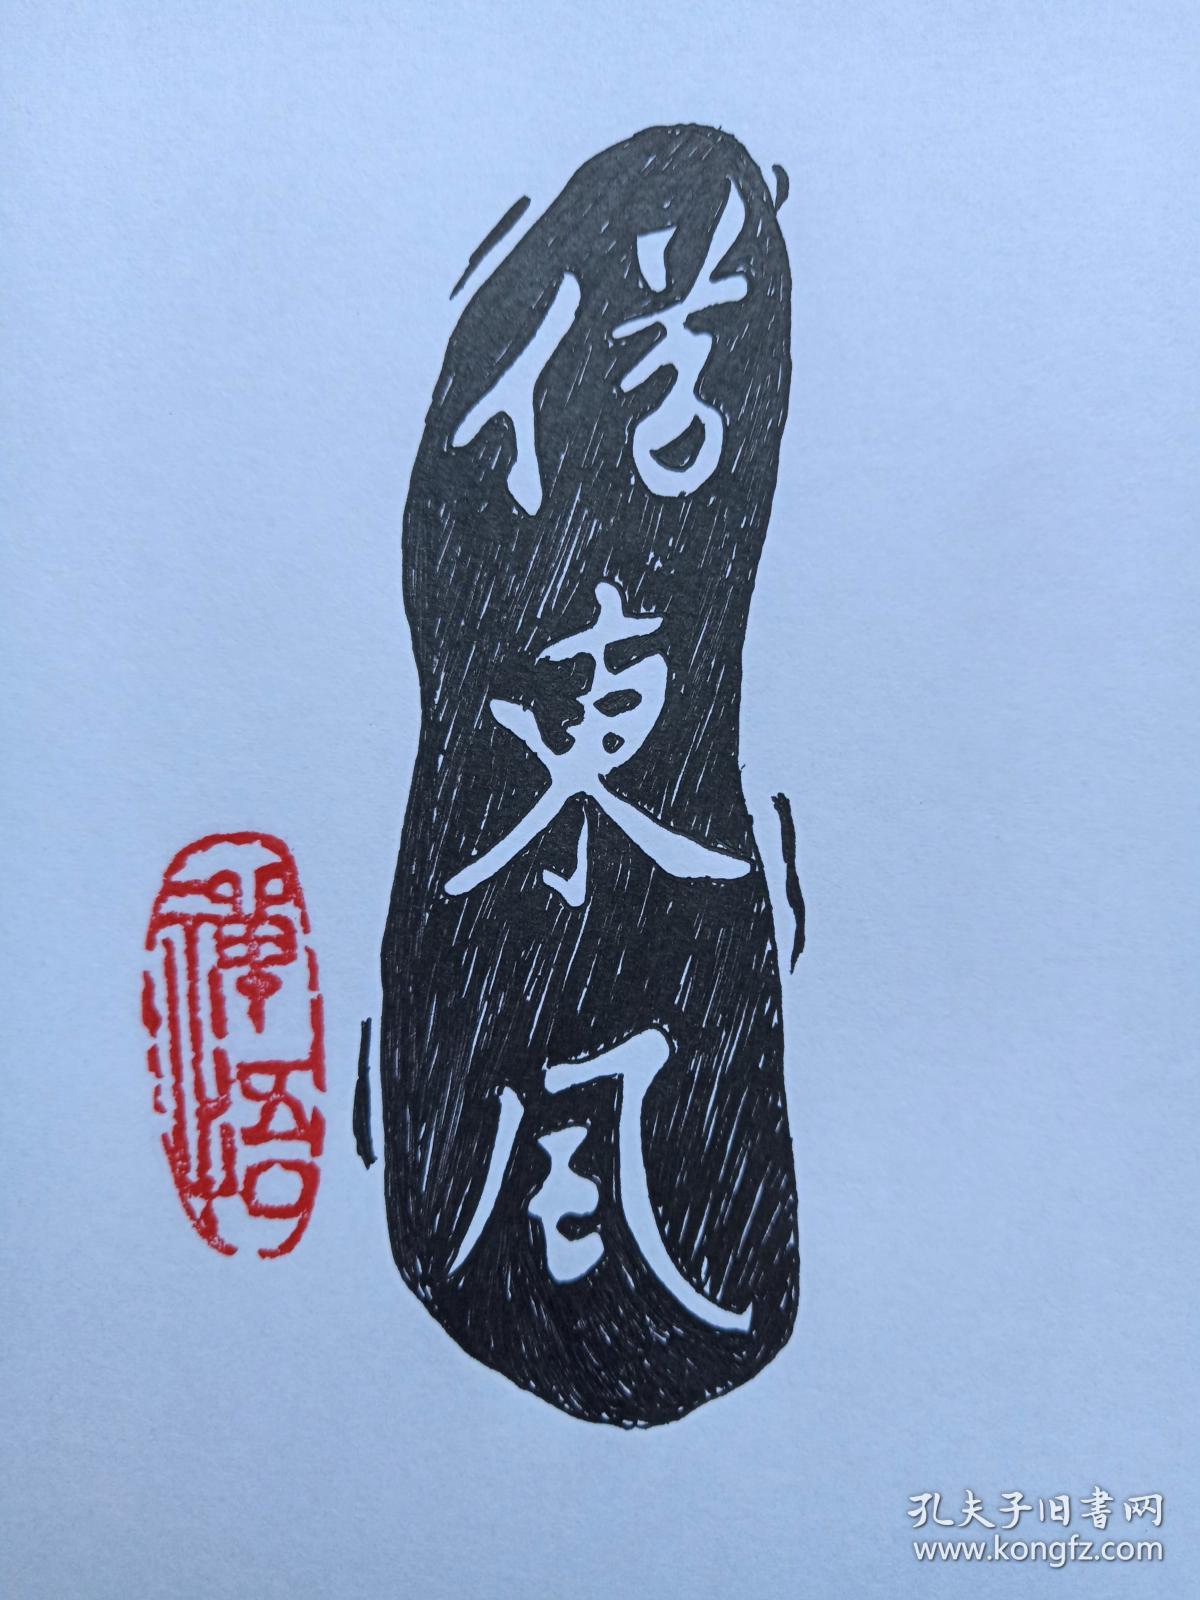 信東風
禅悟
孔夫子旧書网
www.kongfz.com